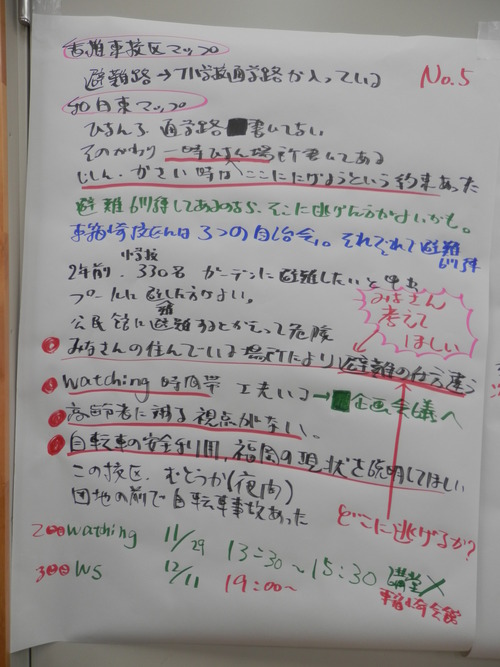 香椎東校区マップ
避難路→小学校通学路が入っている
No.5
和白東マップ
ひなんろ 通学路 書いてない
そのかわり 一時ひなん場所書いてある
じしん・かさい時はここににげようという約束あった
避難
そこに逃げた方がよいかも。
は3つの自治会。それぞれで避難
小学校
2年前. 330名 ガーデンに避難したいと
プールに
方がよい。
公民館に避難するとかえって危険
みなさん
考えて
ほしい
みなさんの住んでいる場所により避難の仕方違う
watching 時間帯 工夫いる→企画会議へ
高齢者に関する視点がない
自転車の安全利用,福岡の現状を説明してほしい
この校区. むとうか(夜間)
団地の前で自転車事故あった
どこに逃げるか?
2 wathing 11/29 13:30～15:30 講堂
3 WS 12/11 19:00～
会館